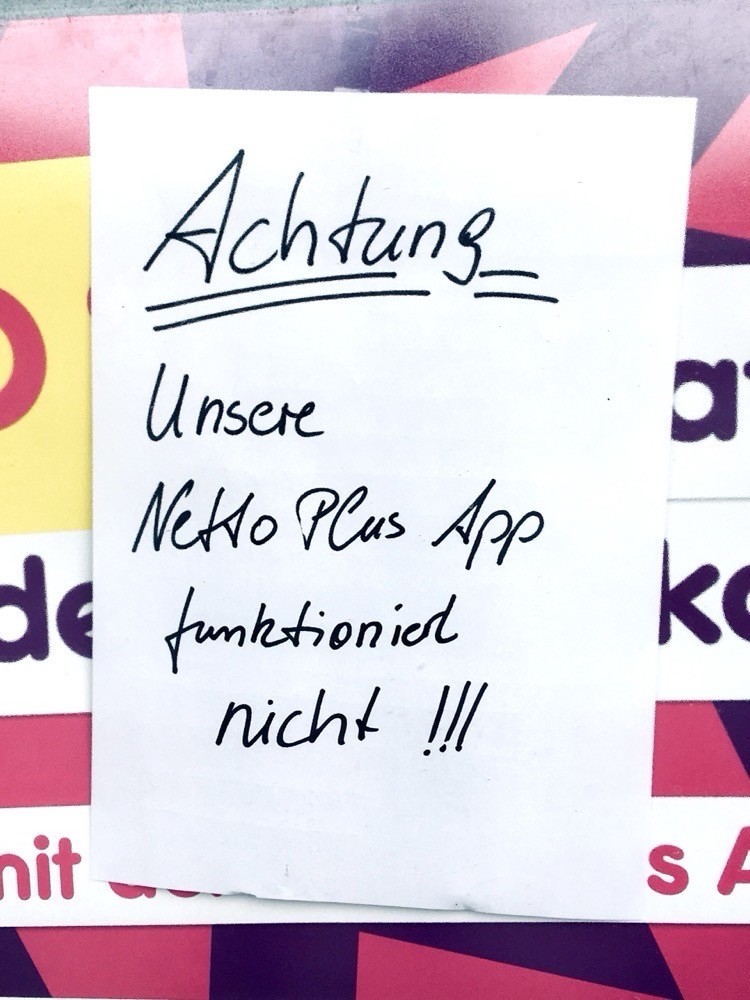 Achtung
Unsere
Netto Plus App
funktioniert
nicht !!!
mit
s A